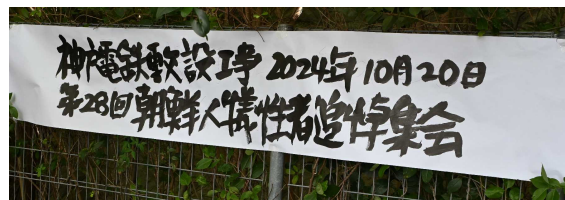 神戸電鉄敷設工事 2024年10月20日
第28回朝鮮人犠牲者追悼集会